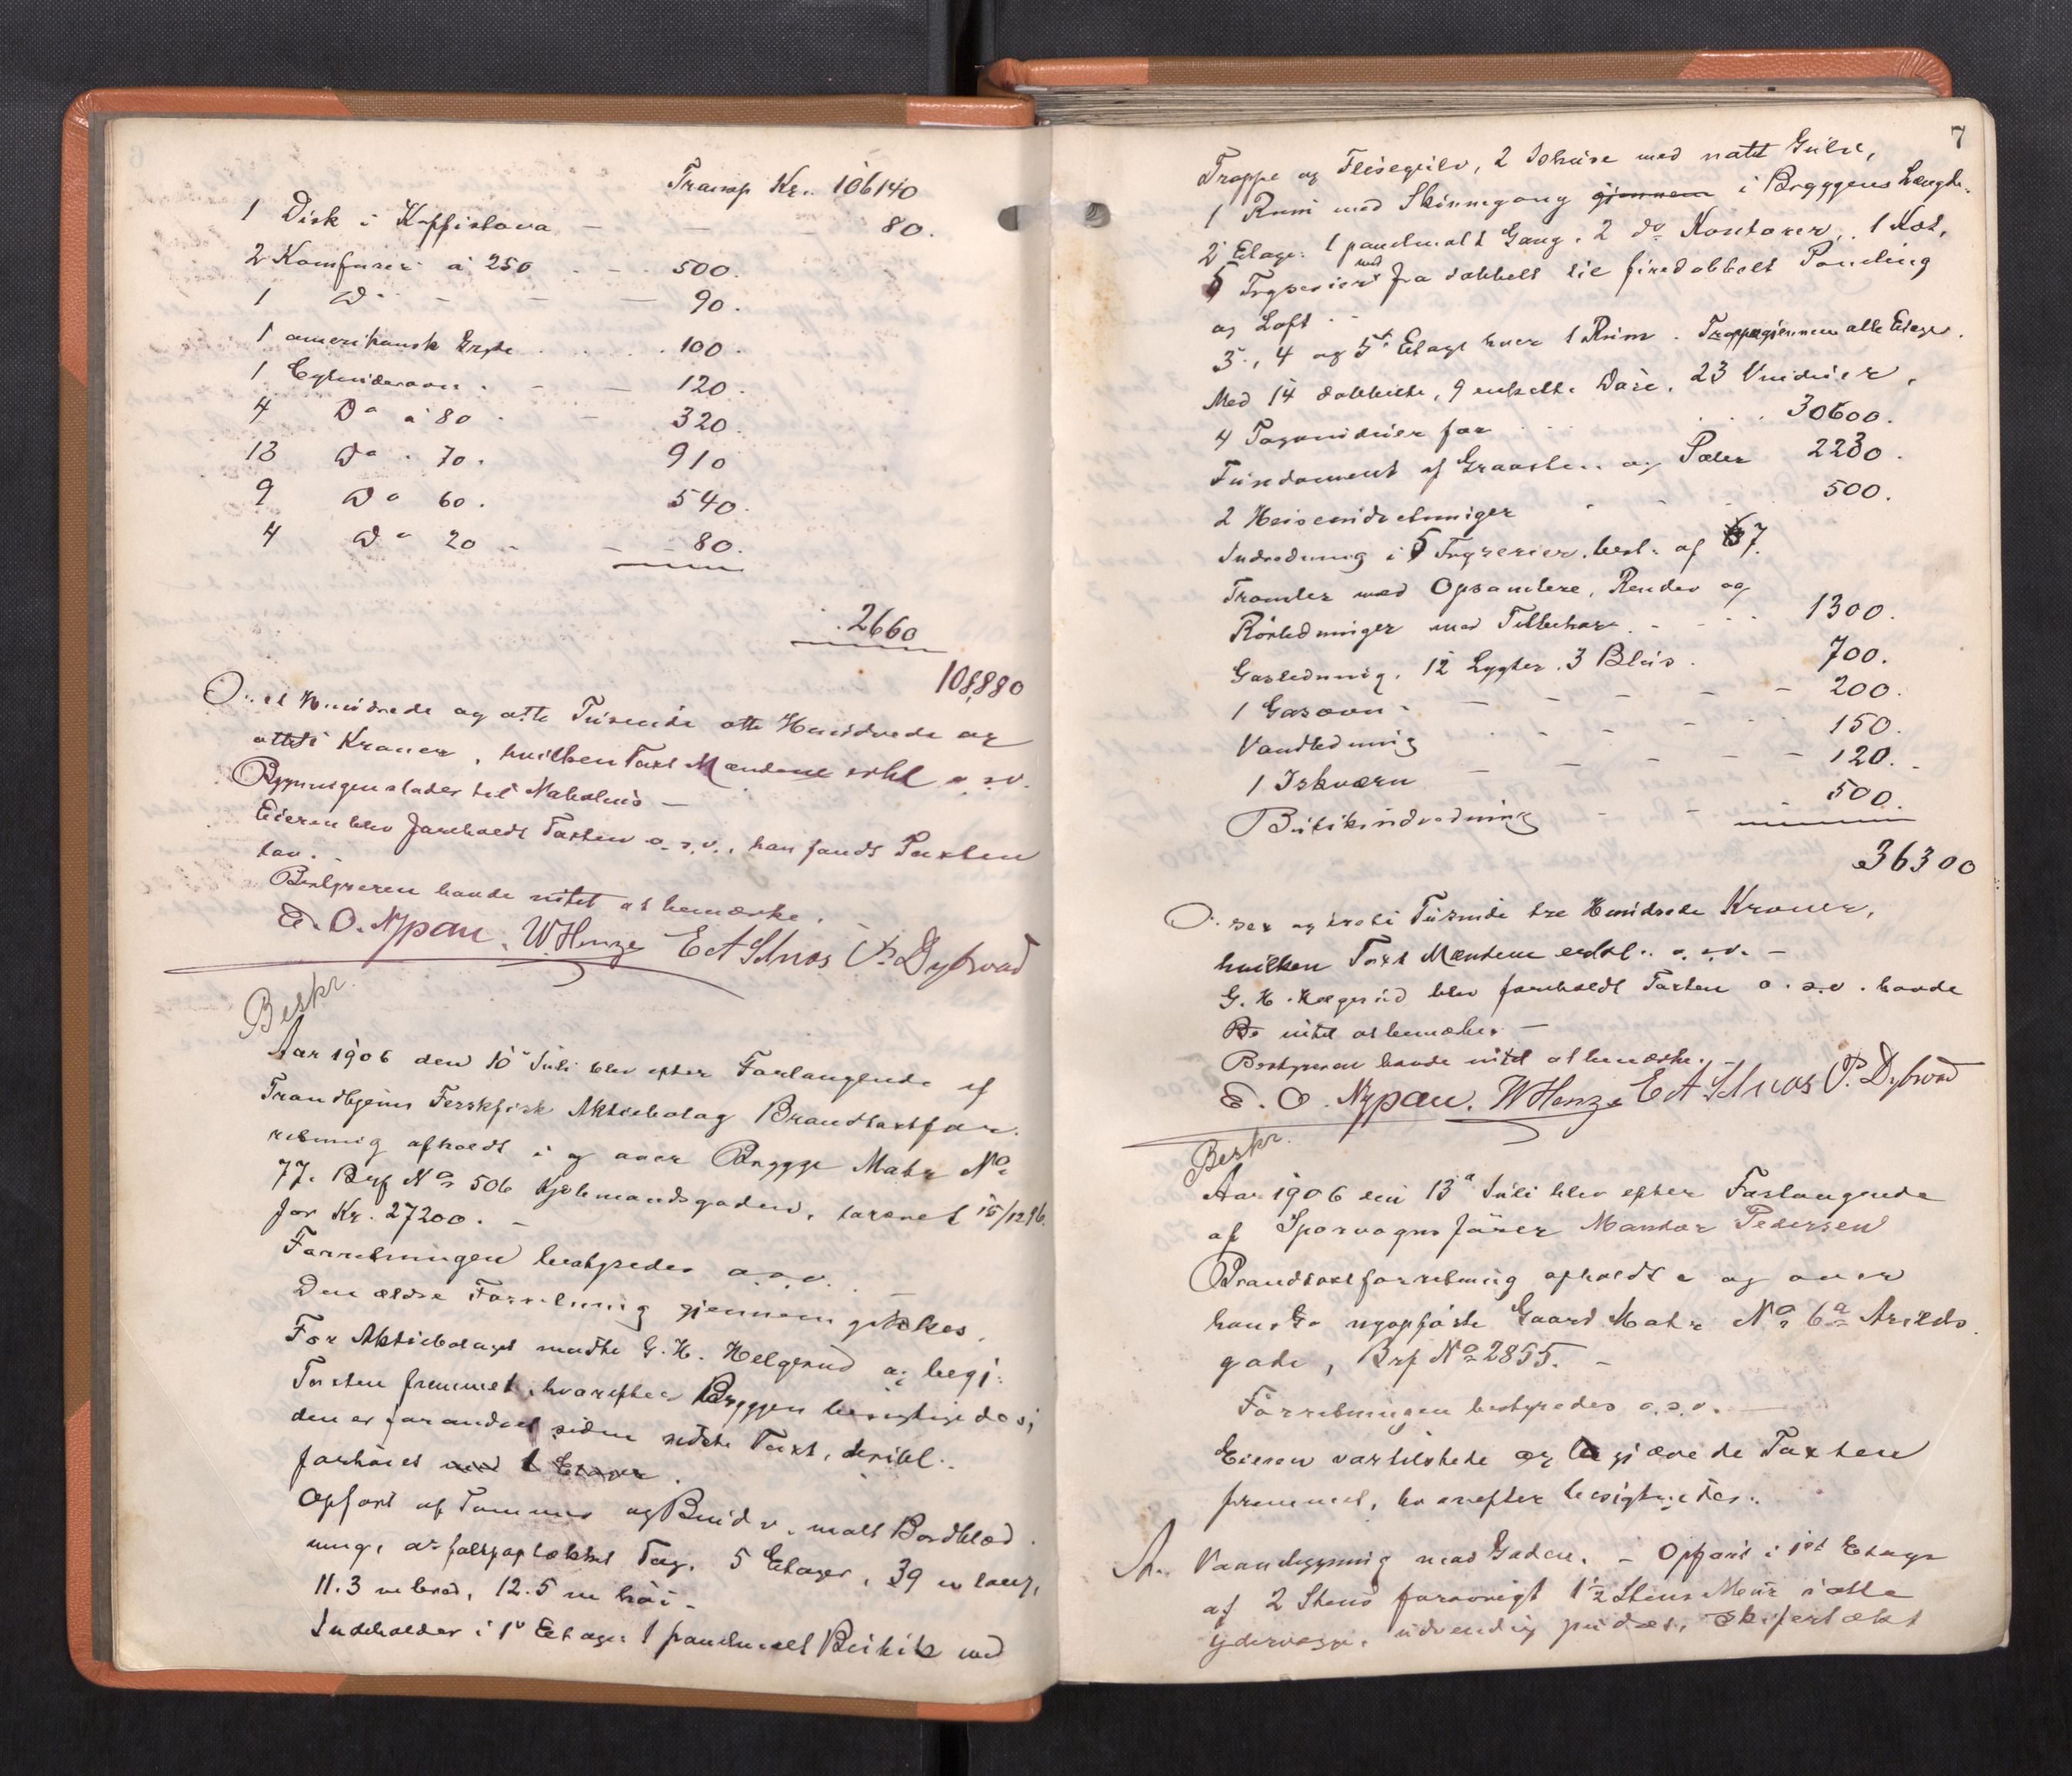 Transp Kr. 106140
1 Disk i Kaffistova — — — 80.
2 Komfurer á 250 . - . 500.
1 Do - — — 90.
1 amerikansk Gryte . . . . . 100.
1 Cylinderovn . - — 120.
4 Do á 80 . — 320.
13 Do . 70. 910
9 Do 60. 540.
4 Do 20 - - - 80.
. 2660
108,880
O: et Hundrede og otte Tusinde otte Hundrede og
otteti Kroner, hvilken Taxt Mændene erkl o.s.v.
Bygningen stades til Nabolaus —
Eieren blev foreholdt Taxten o.s.v., han fandt Taxten
lav. -
Bestyreren havde intet at bemærke.
E. O. Nypan. W Henze E A Schnos P. Dybwad
Beskr.
Aar 1906 den 10de Juli blev efter Forlangende af
Trondhjems Ferskfisk Aktiebolag Brandtaxtfor-
retning afholdt i og over Brygge Matr No
77. Brf No 506 Kjøbmandsgaden, taxeret 15/12 96.
for Kr. 27200. —
Forretningen bestyredes o.s.v. —
Den ældre Forretning gjennemgikkes.
For Aktiebolaget mødte G. H. Helgerud og begj:
Taxten fremmet, hvorefter Bryggen besigtigedes;
den er forandret siden sidste Taxt, deribl.
forhøiet med 1 Etager.
Opført af Tømmer og Bindv. malt Bordklæd-
ning, asfaltpaptækket Tag. 5 Etager, 39 m lang,
11.3 m bred, 12.5 m høi -
Indeholder i 1ste Etage: 1 panelmalt Butik med
7
Trappe og Flisegulv, 2 Ishuse med natet Gulv,
1 Rum med Skinnegang gjennem i Bryggens Længde.
2 Etage: 1 panelmalt Gang, 2 do Kontorer, 1 Kot,
5 Fryserier med fra dobbelt til firedobbelt Paneling
og Loft . -
3., 4 og 5te Etage hver 1 Rum . Trappe gjennem alle Etager.
Med 14 dobbelte, 9 enkelte Døre, 23 Vinduer,
4 Tagvinduer for . . . . . 30600.
Fundament af Graasten og Pæler 2230.
2 Heiseindretninger - - - 500.
Indredning i 5 Fryserier, best. af 67
Tromler med Opsamlere, Render og
Rørledninger med Tilbehør . - - - 1300.
Gasledning, 12 Lygter, 3 Blus . 700.
1 Gasovn - — — — — 200.
Vandledning . . - - - - 150.
1 Iskværn — — — — — 120. -
Butikindredning - - - 500.
36300
O: sex og treti Tusinde tre Hundrede Kroner,
hvilken Taxt Mændene erkl. o.s.v. —
G. H. Helgerud blev foreholdt Taxten o.s.v. havde
De intet at bemærke. —
Bestyreren havde intet at bemærke. —
E. O. Nypan. W Henze E A Schnos P. Dybwad
Beskr.
Aar 1906 den 13de Juli blev efter Forlangende
af Sporvognsfører Mandor Pedersen
Brandtaxtforretning afholdt i og over
hans nyopførte Gaard Matr No 6a Arilds
gade, Brf No 2855. —
Forretningen bestyredes o.s.v. —
Eieren var tilstede og begjærede Taxten
fremmet, hvorefter besigtigedes:
A. Vaandbygning mod Gaden. - Opført i 1ste Etage
af 2 Stens forøvrigt 1½ Stens Mur i alle
Ydervægge, udvendig pudset, skifertækt